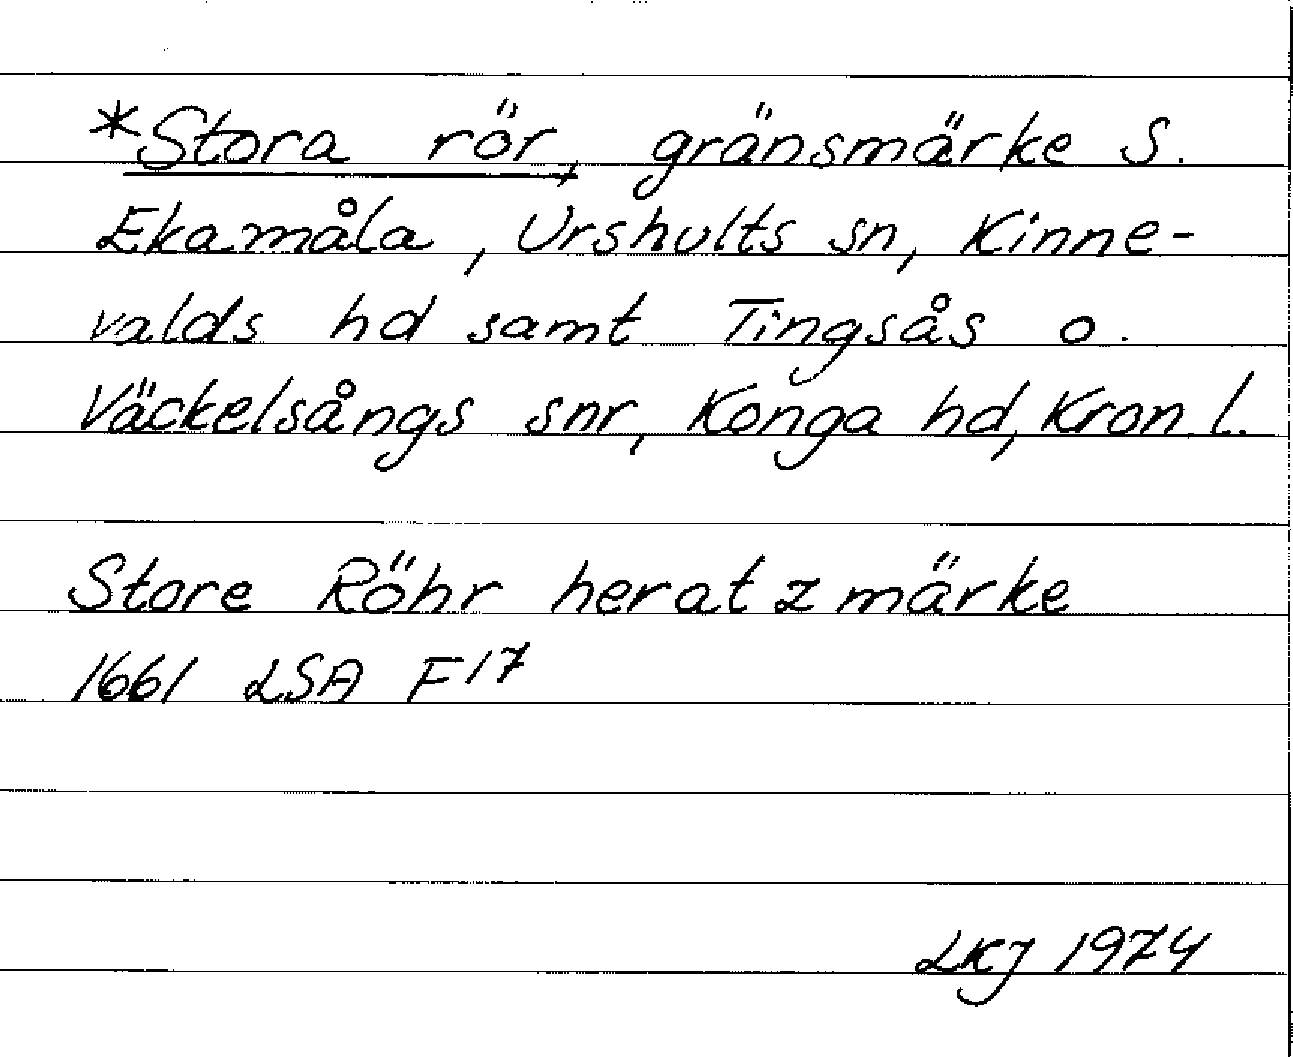 *Stora rör, gränsmärke S.
Ekamåla, Urshults sn, Kinne-
valds hd samt Tingsås o.
Väckelsångs snr, Konga hd, Kron l.
Store Röhr heratzmärke
1661 LSA F17
LKJ 1974